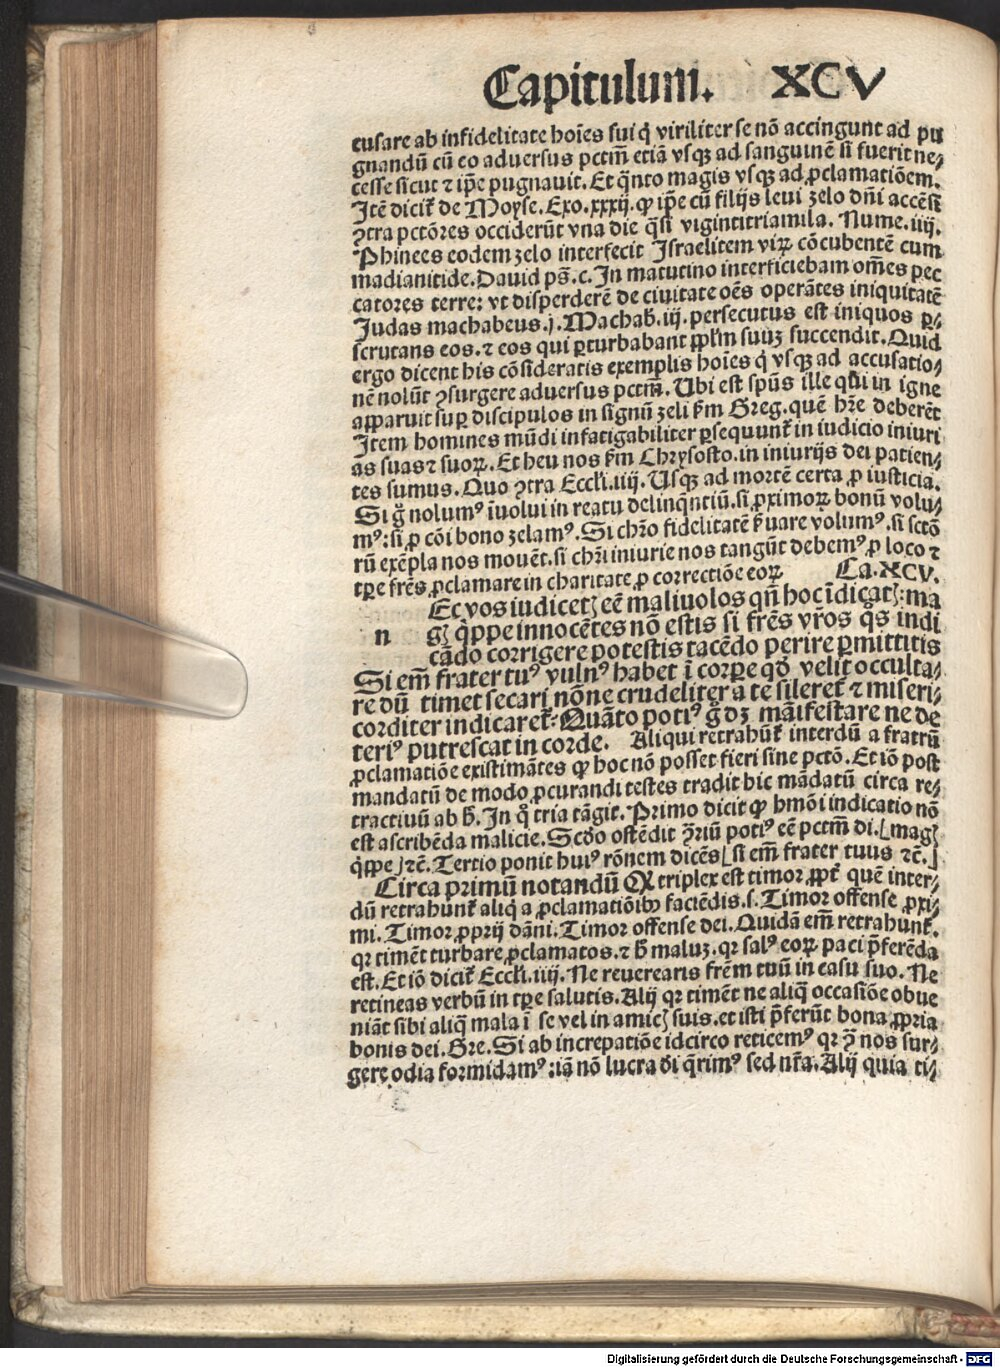 Capitulum. XCV
cusare ab infidelitate hoīes sui q̇ viriliter se nō accingunt ad pu
gnandū cū eo adversus pctm̄ etiā vsqꝫ ad sanguinē si fuerit ne⸗
cesse sicut ⁊ ip̄e pugnauit. Et q̄nto magis vsqꝫ ad ꝓclamatiōem.
Itē dicit᷑ de Moyse. Exo. xxxij. ꝙ ip̄e cū filijs leui zelo dn̄i accēsi
ꝯtra pctōres occiderūt vna die q̄si vigintitriamila. Nume. iiij.
Phinees eodem zelo interfecit Israelitem viꝝ cōcubentē cum
madianitide. Dauid ps̄. c. In matutino interficiebam om̄es pec
catores terre: vt disperderē de ciuitate oēs operātes iniquitatē
Judas machabeus. j. Machab̄. iij. persecutus est iniquos ꝑ⸗
scrutans eos. ⁊ eos qui ꝑturbabant pplm̄ suuꝫ succendit. Quid
ergo dicent his cōsideratis exemplis hoīes q̇ vsqꝫ ad accusatio⸗
nē nolūt ꝯsurgere aduersus pctm̄. Ubi est spūs ille qui in igne
apparuit suꝑ discipulos in signū zeli ẜm Greg. quē hr̄e deberēt
Item homines mūdi infatigabiliter ꝑsequunt᷑ in iudicio iniuri
as suas ⁊ suoꝝ. Et heu nos ẜm Chrysosto. in iniurijs dei patien⸗
tes sumus. Quo ꝯtra Eccli. iiij. Usqꝫ ad mortē certa ꝓ iusticia.
Si g̊ nolumꝰ īuolui in reatu delinq̄ntiū. si ꝓximoꝝ bonū volu⸗
mꝰ: si ꝓ cōi bono zelamꝰ. Si chr̄o fidelitatē ẜuare volumꝰ. si sctō
rū exēpla nos mouēt. si chr̄i iniurie nos tangūt debemꝰ ꝓ loco ⁊
tꝑe fr̄es ꝓclamare in charitate ꝓ correctiōe eoꝝ Ca. XCV.
Ec vos iudicetꝭ eē maliuolos qn̄ hoc īdicatꝭ: ma
n gꝭ q̇ppe innocētes nō estis si fr̄es vr̄os q̊s indi
cādo corrigere potestis tacēdo perire ꝑmittitis
Si em̄ frater tuꝰ vulnꝰ habet ī corꝑe qd̄ velit occulta⸗
re dū timet secari nōne crudeliter a te sileret᷑ ⁊ miseri⸗
corditer indicaret᷑? Quāto potiꝰ g̊ dꝫ māifestare ne de
teriꝰ putrescat in corde. Aliqui retrahūt᷑ interdū a fratrū
ꝓclamatiōe existimātes ꝙ hoc nō posset fieri sine pctō. Et iō post
mandatū de modo ꝓcurandi testes tradit hic mādatū circa re⸗
tractiuū ab h̄. In q̊ tria tāgit. Primo dicit ꝙ hmōi indicatio nō
est ascribēda malicie. Scd̄o ostēdit ꝯ̄riū potiꝰ eē pctm̄ di. [magꝭ
q̇ppe] ⁊c̄. Tertio ponit huiꝰ rōnem dicēs [si em̄ frater tuus ⁊c̄.]
Circa primū notandū Qꝙ triplex est timor ꝓpt̄ quē inter⸗
dū retrahunt᷑ aliq̇ a ꝓclamatiōibꝰ faciēdis. s. Timor offense ꝓxi⸗
mi. Timor ꝓprij dāni. Timor offense dei. Quidā em̄ retrahunt᷑.
qꝛ timēt turbare ꝓclamatos. ⁊ h̄ maluꝫ. qꝛ salꝰ eoꝝ paci p̄ferēda
est. Et iō dicit᷑ Eccli. iiij. Ne reuerearis fr̄em tuū in casu suo. Ne
retineas verbū in tꝑe salutis. Alij qꝛ timēt ne aliq̄ occasiōe obue
niāt sibi aliq̄ mala ī se vel in amicꝭ suis. et isti p̄ferūt bona ꝓpria
bonis dei. Gre. Si ab increpatiōe idcirco reticemꝰ qꝛ ꝯ̄ nos sur⸗
gere odia formidamꝰ: iā nō lucra d̄i q̄rimꝰ sed nr̄a. Alij quia ti⸗
Digitalisierung gefördert durch die Deutsche Forschungsgemeinschaft - DFG